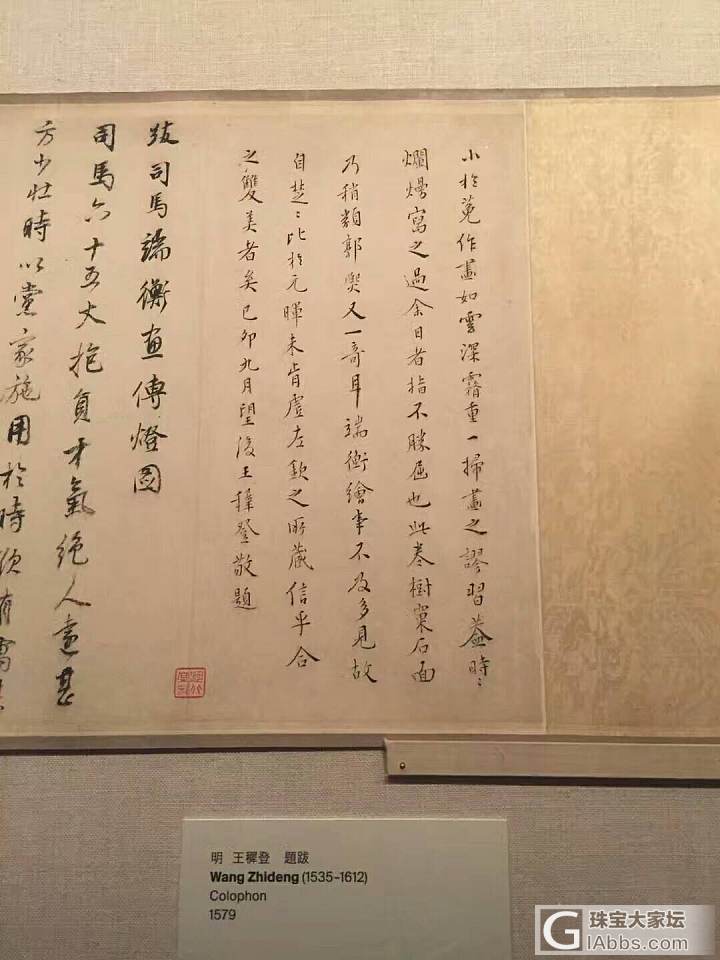 小於菟作畫如雲深霧重一掃畫之謬習葢時〻
爛熳寫之過余目者指不勝屈也此卷樹窠石面
乃稍類郭熙又一奇耳端衡繪事不及多見故
自楚〻比於元暉未肯虛左欽之所藏信乎合
之雙美者矣己卯九月望後王穉登敬題
跋司馬端衡画傳燈圖
司馬六十五丈抱負才氣絶人遠甚
方少壯時以黨家施用於時須有寓
明 王穉登 題跋
Wang Zhideng (1535–1612)
Colophon
1579
G 珠宝大家坛
iAbbs.com